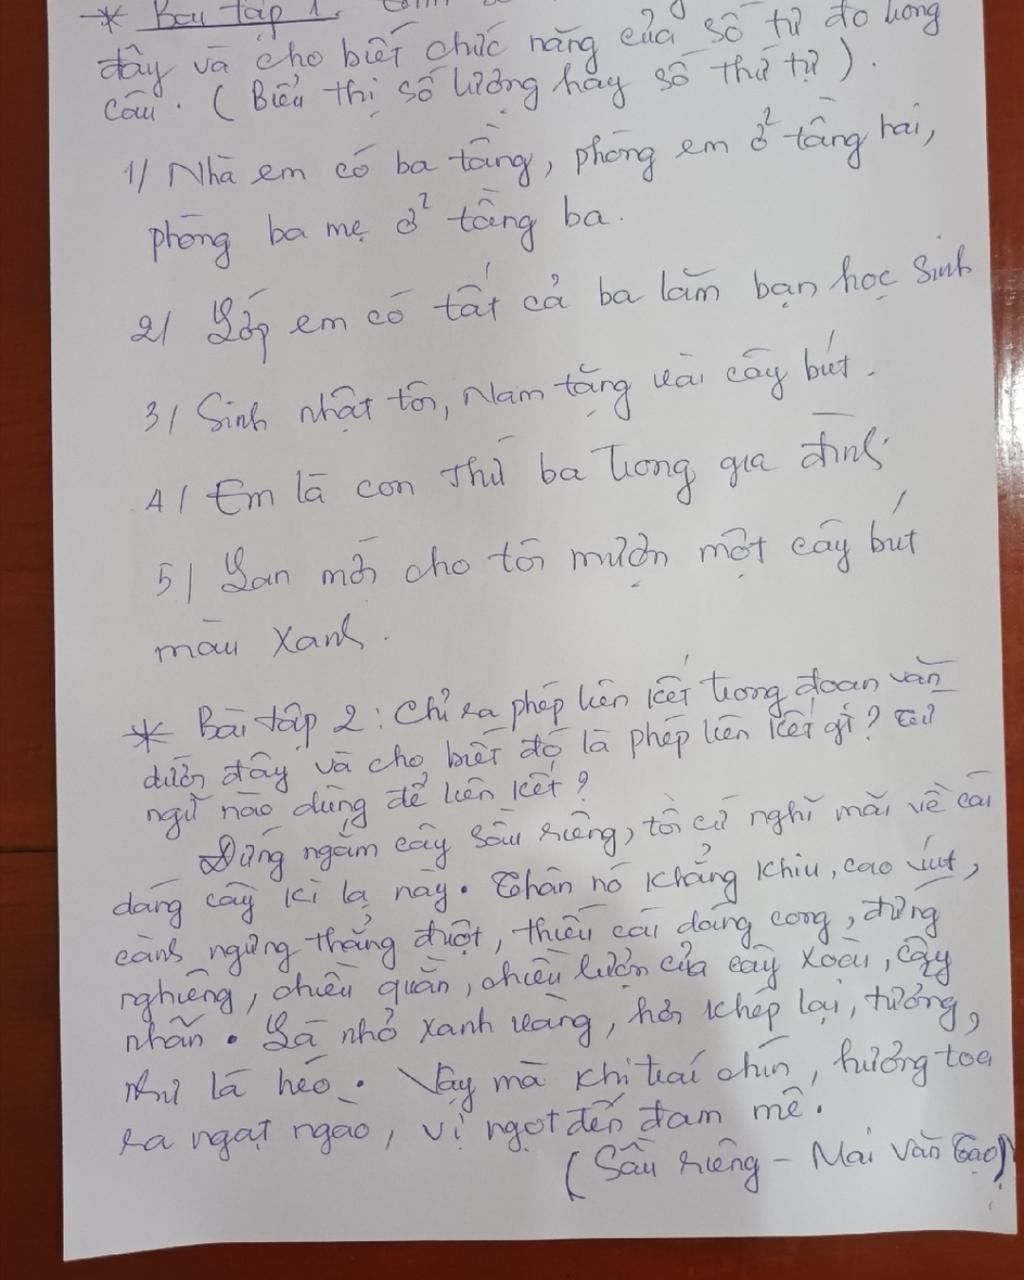 * Bài tập 1.
đây và cho biết chức năng của số từ đó trong
câu. (Biểu thị số lượng hay số thứ tự).
1/ Nhà em có ba tầng, phòng em ở tầng hai,
phòng ba mẹ ở tầng ba.
2/ Lớp em có tất cả ba lăm bạn học sinh
3/ Sinh nhật tôi, Nam tặng vài cây bút.
4/ Em là con thứ ba trong gia đình.
5/ Lan mới cho tôi mượn một cây bút
màu xanh.
* Bài tập 2: Chỉ ra phép liên kết trong đoạn văn
dưới đây và cho biết đó là phép liên kết gì? Từ
ngữ nào dùng để liên kết?
Đứng ngắm cây sầu riêng, tôi cứ nghĩ mãi về cái
dáng cây kì lạ này. Thân nó khẳng khiu, cao vút,
cành ngang thẳng đuột, thiếu cái dáng cong, đứng
nghiêng, chiều quằn, chiều lượn của cây xoài, cây
nhãn. Lá nhỏ xanh vàng, hơi khép lại, tưởng,
như lá héo. Vậy mà khi trái chín, hương tỏa
ra ngạt ngào, vị ngọt đến đam mê.
(Sầu riêng - Mai Văn Tạo)